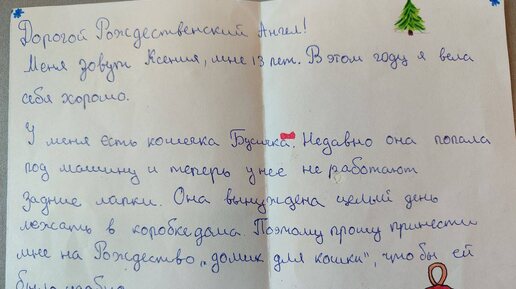 Дорогой Рождественский Ангел!
Меня зовут Ксения, мне 13 лет. В этом году я вела
себя хорошо.
У меня есть кошечка Бусичка. Недавно она попала
под машину и теперь у нее не работают
задние лапки. Она вынуждена целый день
лежать в коробке дома. Поэтому прошу принести
мне на Рождество „домик для кошки", чтобы ей
было удобно